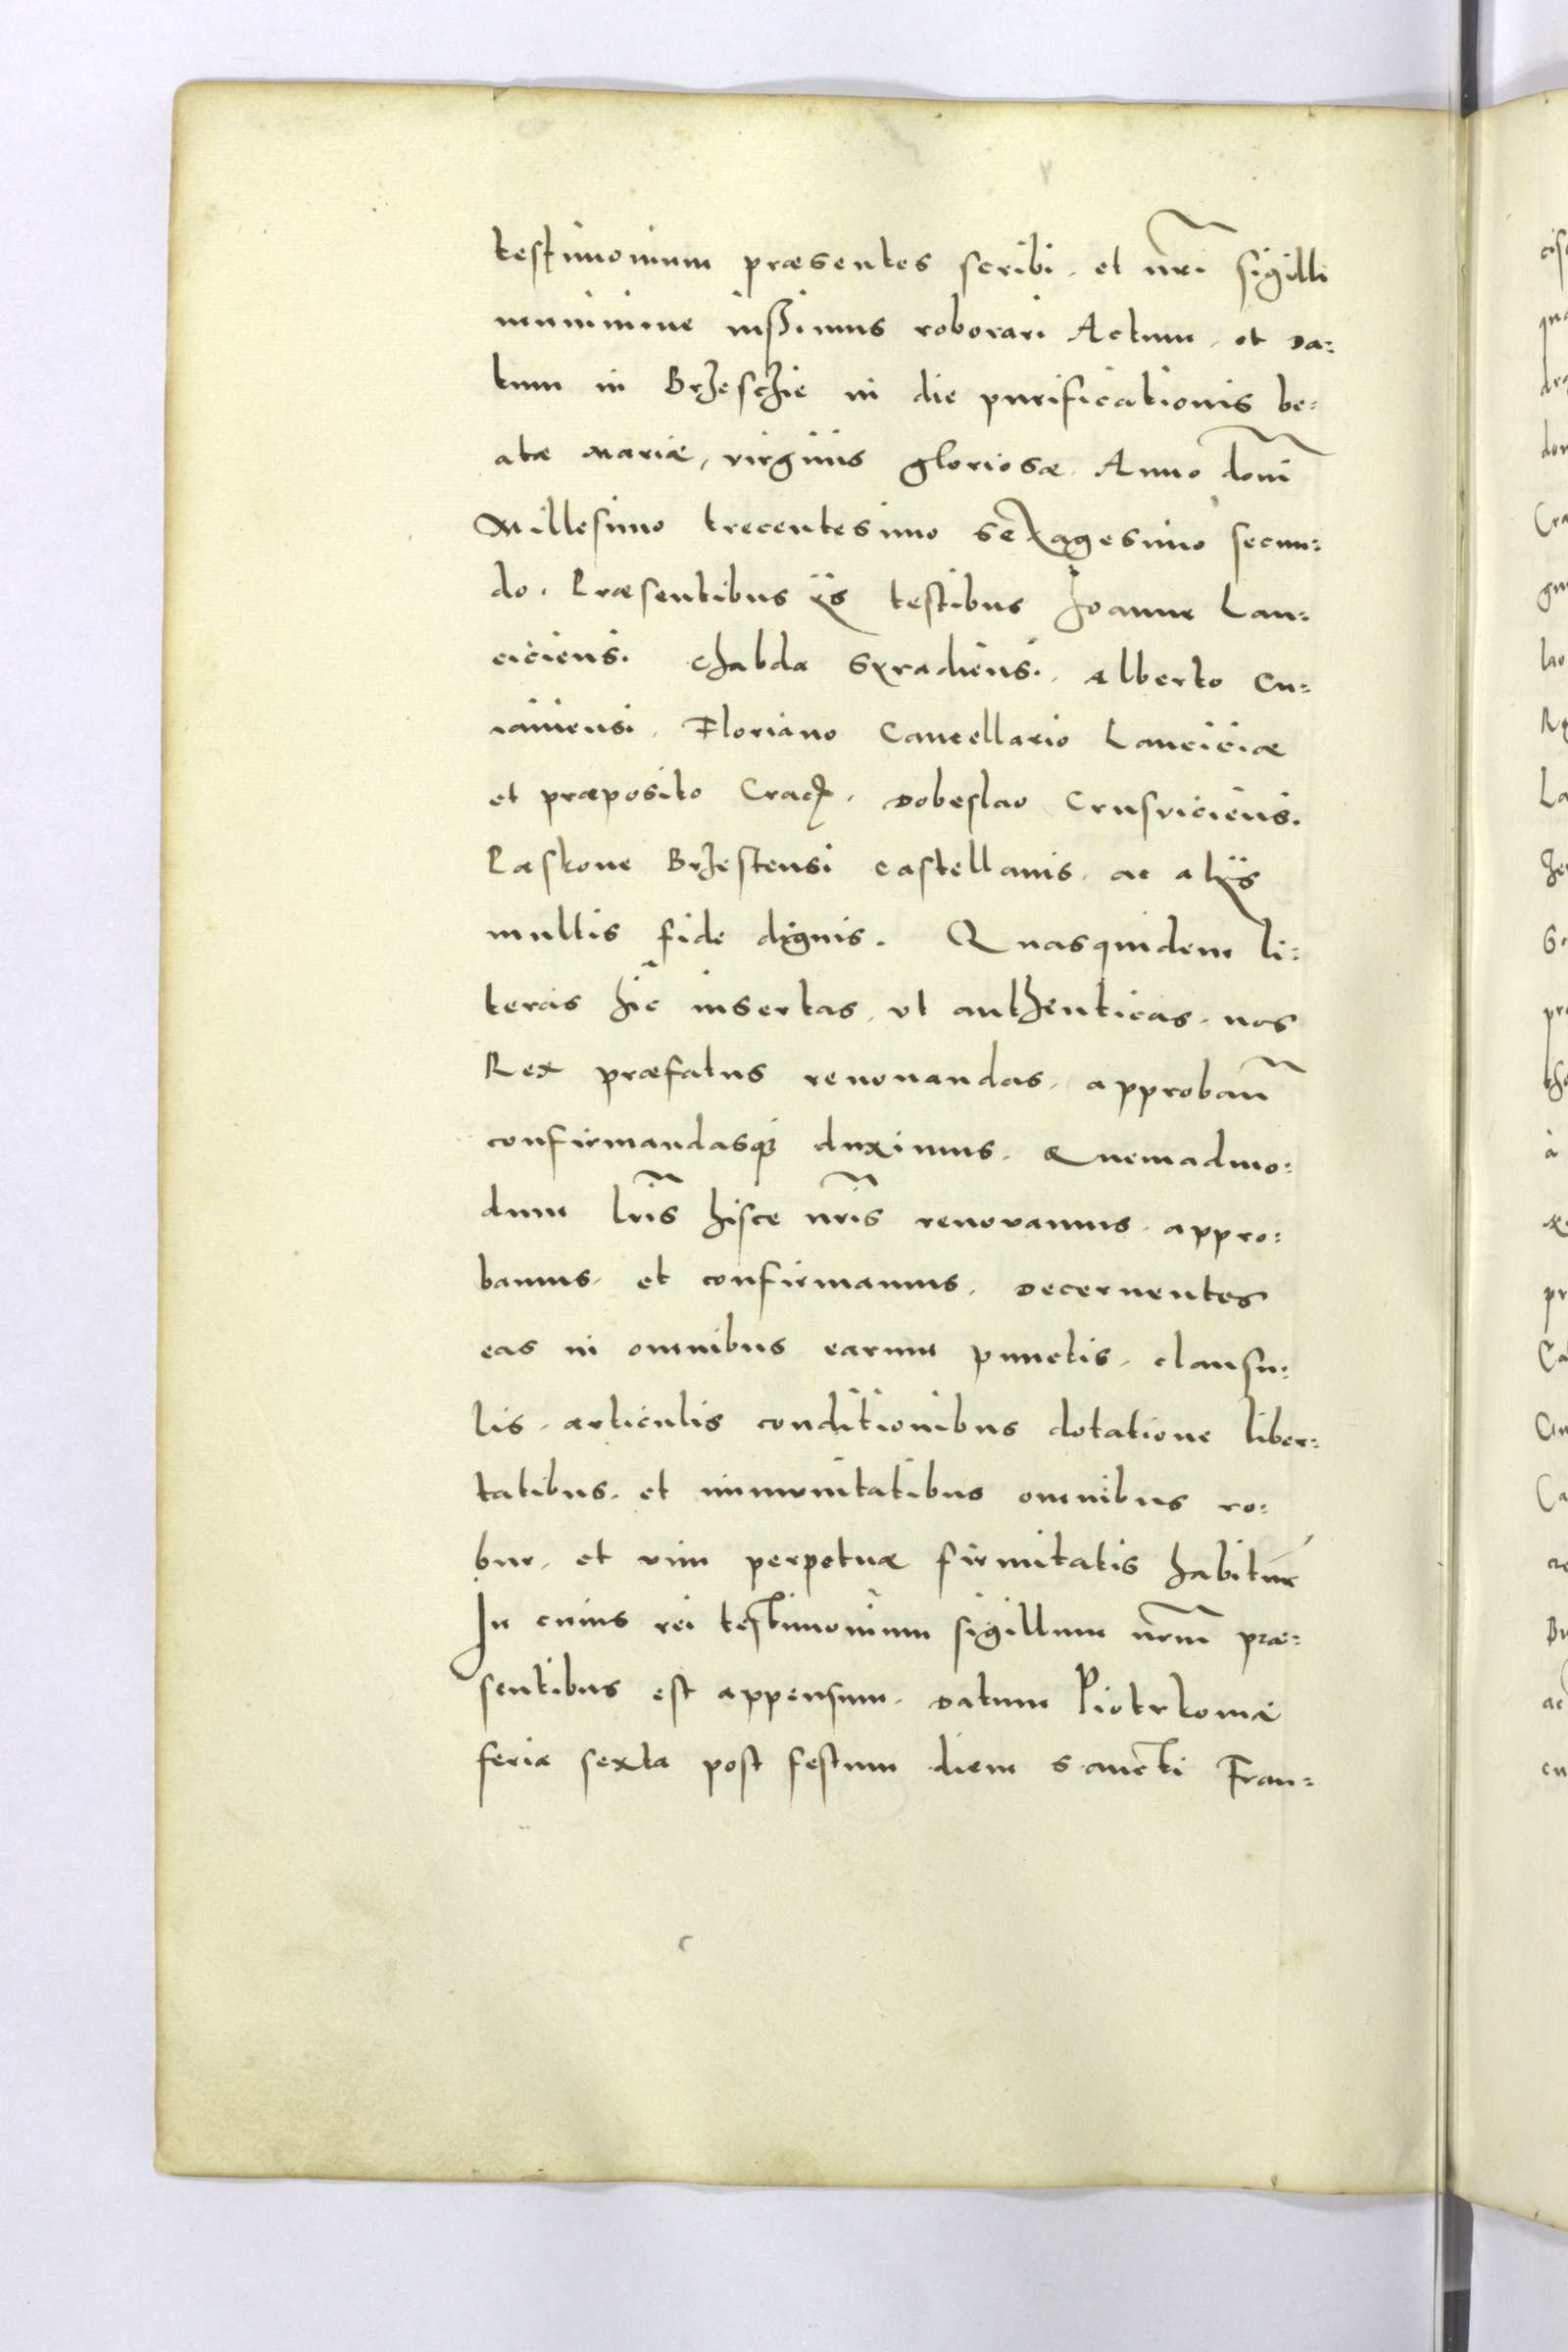 testimonium præsentes scribi, et nr̃i sigilli
munimine iussimus roborari Actum, et Da:
tum in Brzeschie in die purificationis be:
atæ Mariæ, virginis gloriosæ Anno dom̃i
Millesimo trecentesimo sexagesimo secun:
do. Præsentibus ijs testibus Joanne Lan:
ciciens. Chabda Syradiens. Alberto Cu:
iaviensi, Floriano Cancellario Lanciciæ
et præposito Crac. Dobeslao Crusviciens.
Paskone Brzestensi castellanis, ac alijs
multis fide dignis. Quasquidem li:
teras hic insertas, ut authenticas, nos
Rex præfatus renouandas, approban̄
confirmandasq; duximus, Quemadmo:
dum lr̃is hisce nr̃is renovamus, appro:
bamus, et confirmamus, Decernentes
eas in omnibus earum punctis, clausu:
lis, articulis conditionibus dotatione liber:
tatibus, et immunitatibus omnibus ro:
bur, et vim perpetuæ firmitatis habitur̃
In cuius rei testimonium sigillum nr̃um præ:
sentibus est appensum. Datum Piotrkoviæ
feria sexta post festum diem Sancti Fran: